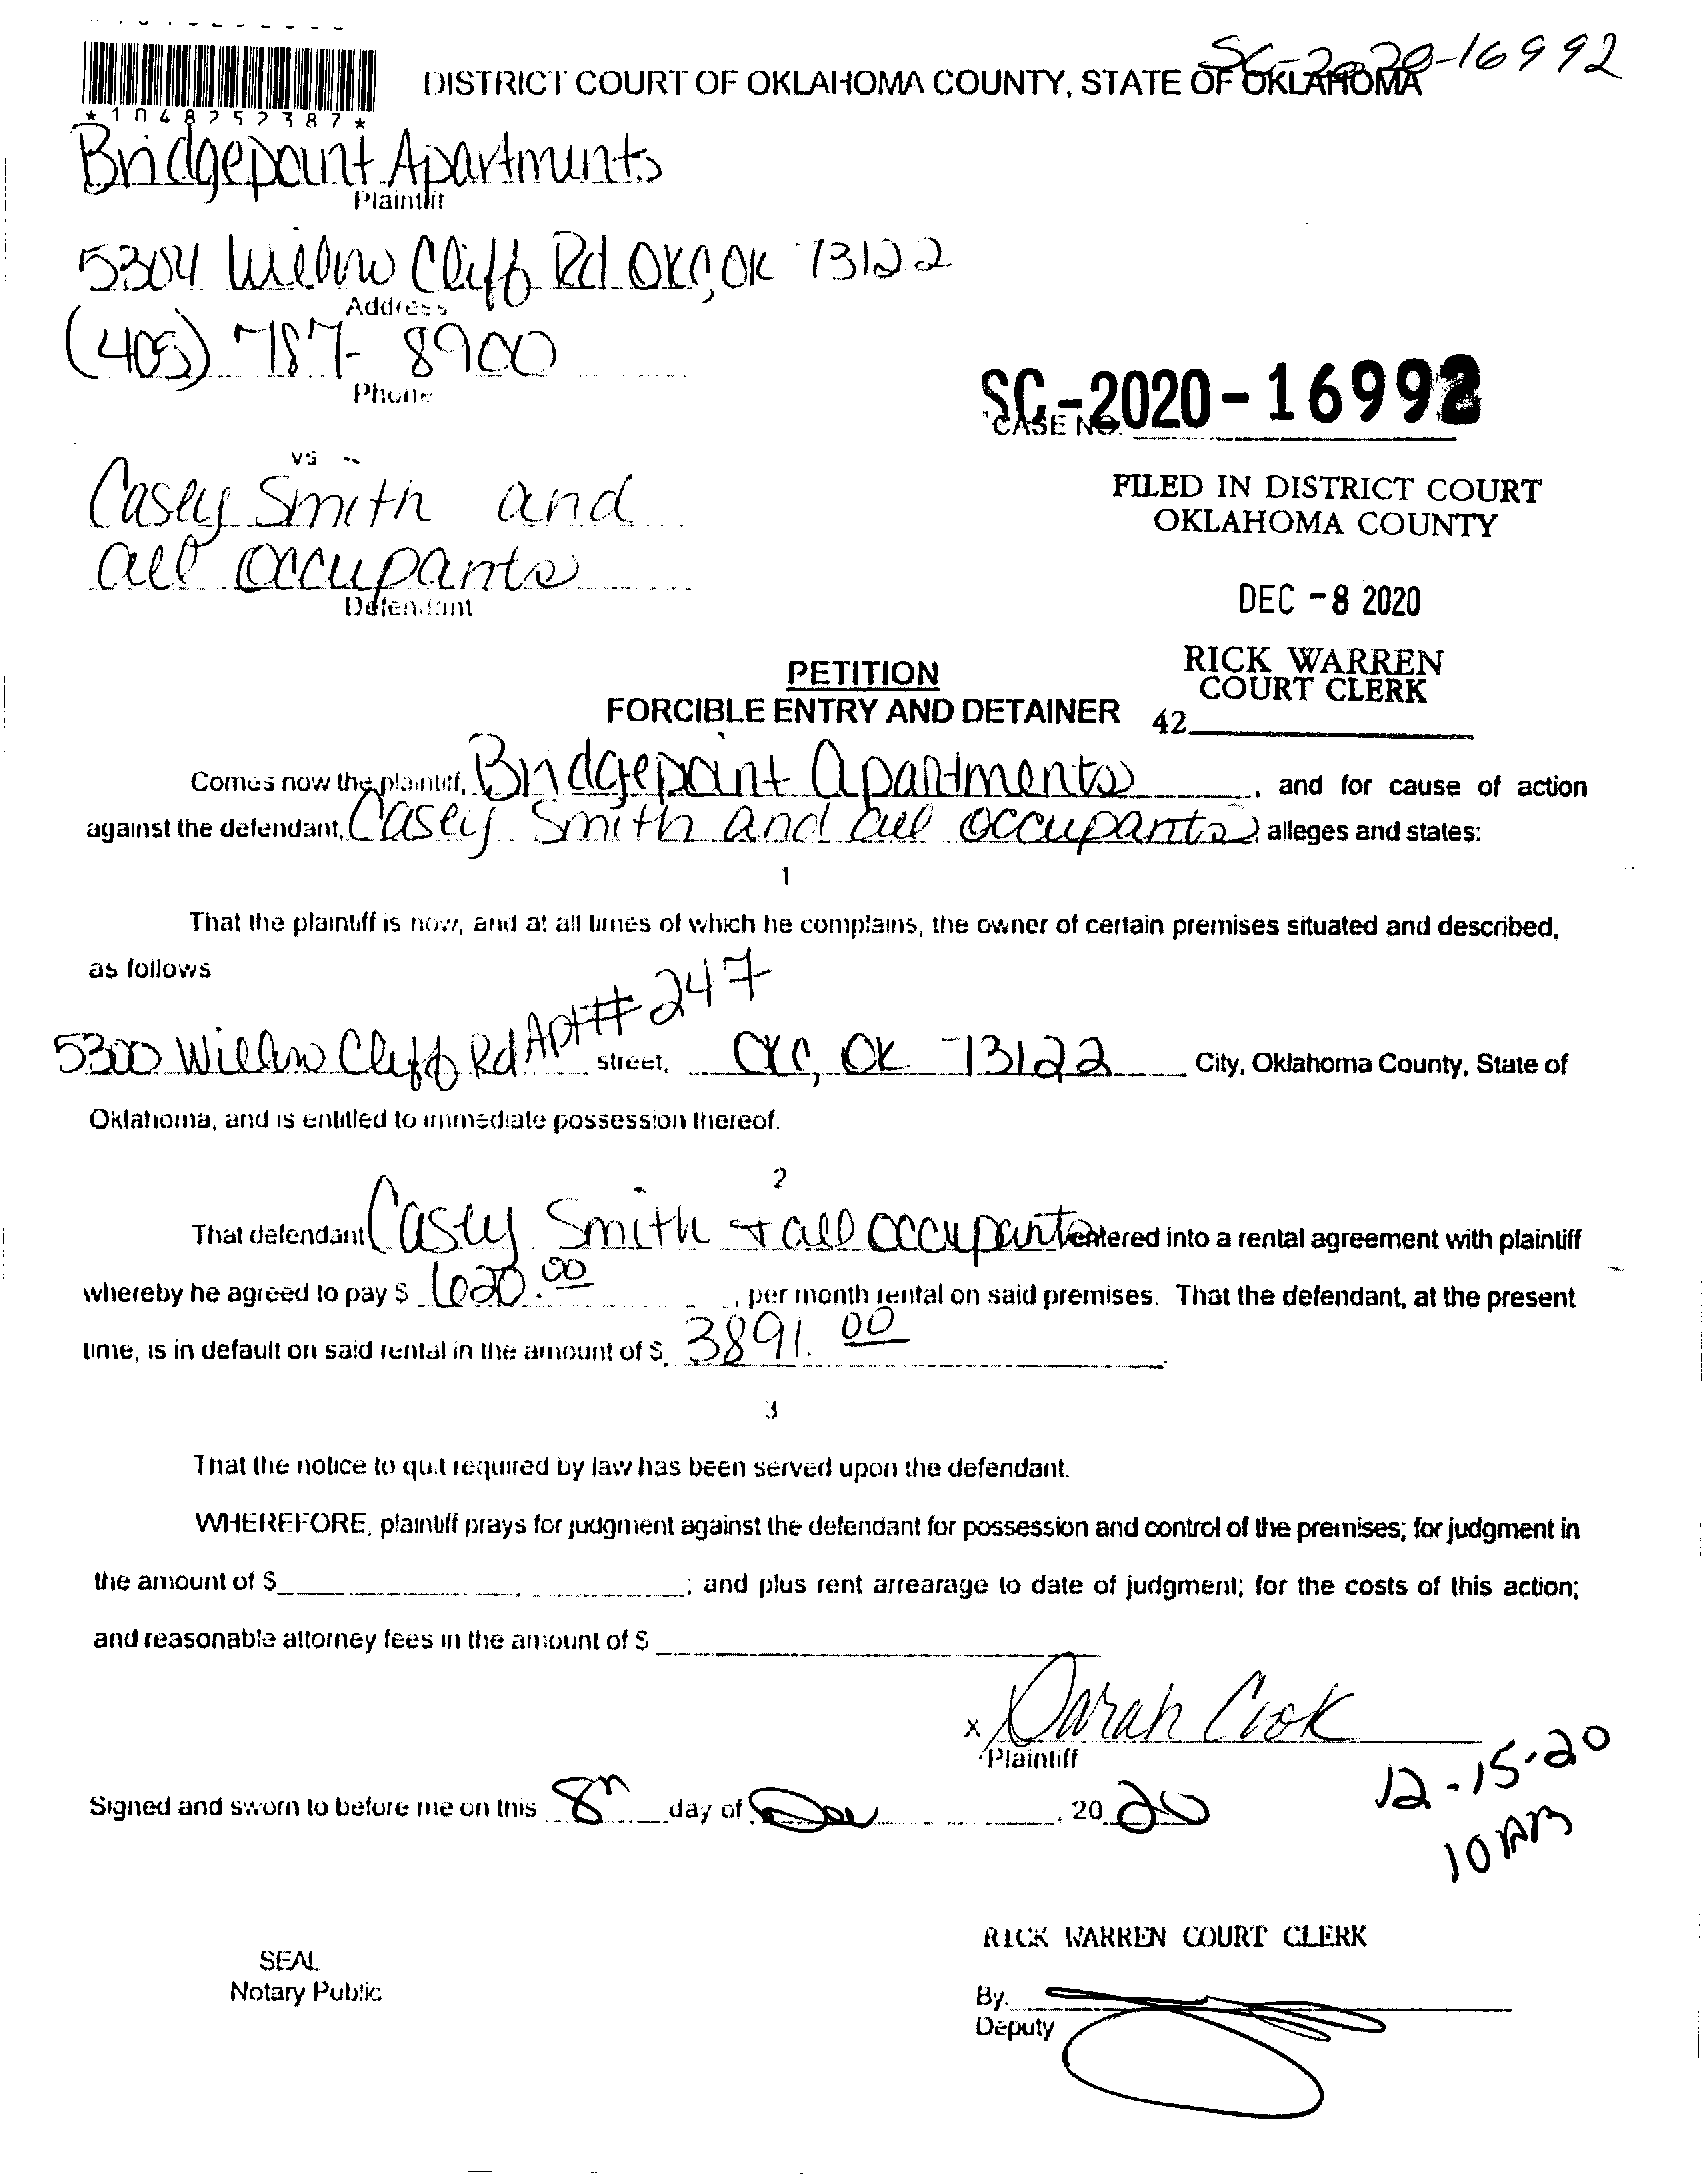 SC-2020-16992
DISTRICT COURT OF OKLAHOMA COUNTY, STATE OF OKLAHOMA
*1048252387*
Bridgepoint Apartments
Plaintiff
5304 Willow Cliff Rd OKC, OK 73122
Address
(405) 787-8900
Phone
SC-2020-16992
CASE NO.
vs
Casey Smith and
all occupants
Defendant
FILED IN DISTRICT COURT
OKLAHOMA COUNTY
DEC -8 2020
RICK WARREN
COURT CLERK
42
PETITION
FORCIBLE ENTRY AND DETAINER
Comes now the plaintiff, Bridgepoint Apartments, and for cause of action
against the defendant, Casey Smith and all occupants, alleges and states:
1
That the plaintiff is now, and at all times of which he complains, the owner of certain premises situated and described,
as follows
5300 Willow Cliff Rd Apt # 247 street, OKC, OK 73122 City, Oklahoma County, State of
Oklahoma, and is entitled to immediate possession thereof.
2
That defendant Casey Smith + all occupants entered into a rental agreement with plaintiff
whereby he agreed to pay $ 620.00, per month rental on said premises. That the defendant, at the present
time, is in default on said rental in the amount of $ 3891.00.
3
That the notice to quit required by law has been served upon the defendant.
WHEREFORE, plaintiff prays for judgment against the defendant for possession and control of the premises; for judgment in
the amount of $ ; and plus rent arrearage to date of judgment; for the costs of this action;
and reasonable attorney fees in the amount of $
x Sarah Cook
Plaintiff
Signed and sworn to before me on this 8th day of Dec, 20 20
12-15-20
10 AM
SEAL
Notary Public
RICK WARREN COURT CLERK
By
Deputy